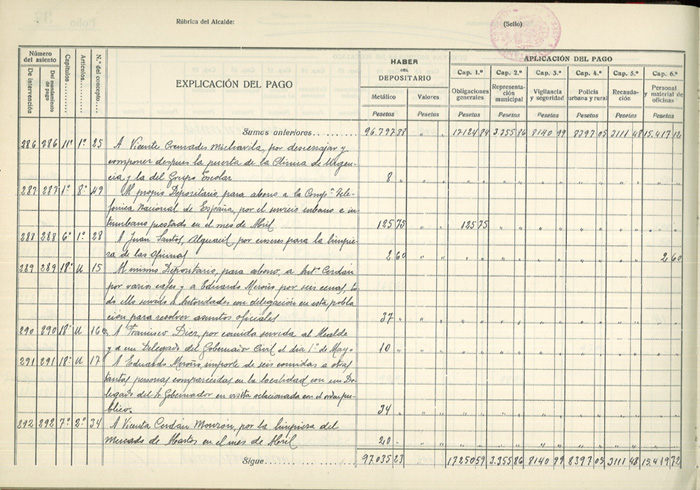 Rúbrica del Alcalde:
(Sello)
Número del asiento
De intervención
Del mandamiento de pago
Capítulos
Artículos
N.º del concepto
EXPLICACIÓN DEL PAGO
HABER
DEL
DEPOSITARIO
Metálico
Valores
Pesetas
Pesetas
APLICACIÓN DEL PAGO
Cap. 1.º
Obligaciones generales
Pesetas
Cap. 2.º
Representación municipal
Pesetas
Cap. 3.º
Vigilancia y seguridad
Pesetas
Cap. 4.º
Policía urbana y rural
Pesetas
Cap. 5.º
Recaudación
Pesetas
Cap. 6.º
Personal y material de oficinas
Pesetas
Sumas anteriores 96.797 88 17124 84 3.255 86 8140 99 8397 05 3111 48 15.417 12
286 286 11º 1º 25 A Vicente
componer después la puerta de la Clínica de Urgen-
cia y la del Grupo Escolar 8 "
287 287 1º 8º 49 Al propio Depositario para abono a la Compª. Tele-
fónica Nacional de España, por el servicio urbano e in-
terurbano prestado en el mes de Abril 125 75 125 75
288 288 6º 1º 28 A Juan Santos, Alguacil, por enseres para la limpie-
za de las oficinas 2 60 2 60
289 289 18º U 15 Al mismo Depositario, para abono, a Antº Cerdán
por varios cafés y a Eduardo por seis cenas, to-
do ello servido a Autoridades con delegación en esta pobla-
ción para resolver asuntos oficiales 37 "
290 290 18º U 16 A Francisco Díez, por comida servida al Alcalde
y a un Delegado del Gobernador Civil el día 1º de Mayo 10 "
291 291 18º U 17 A Eduardo importe de seis comidas a otras
tantas personas comparecidas en la localidad con un De-
legado del Sr. Gobernador en visita relacionada con el orden pú-
blico 34 "
292 292 7º 2º 34 A Vicenta Cerdán Monzón, por la limpieza del
Mercado de Abastos en el mes de Abril 20 "
Sigue 97.035 23 17250 59 3.255 86 8140 99 8397 05 3111 48 15.419 72